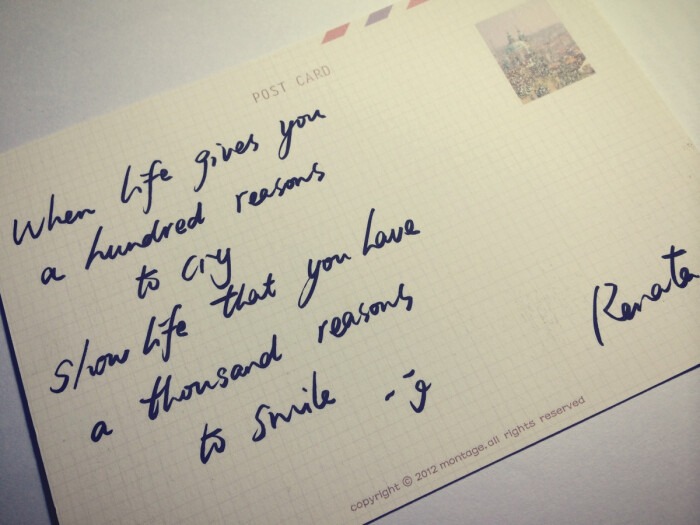 POST CARD
When life gives you
a hundred reasons
to cry
Show life that you have
a thousand reasons
to smile
Renata
copyright © 2012 montage.all rights reserved